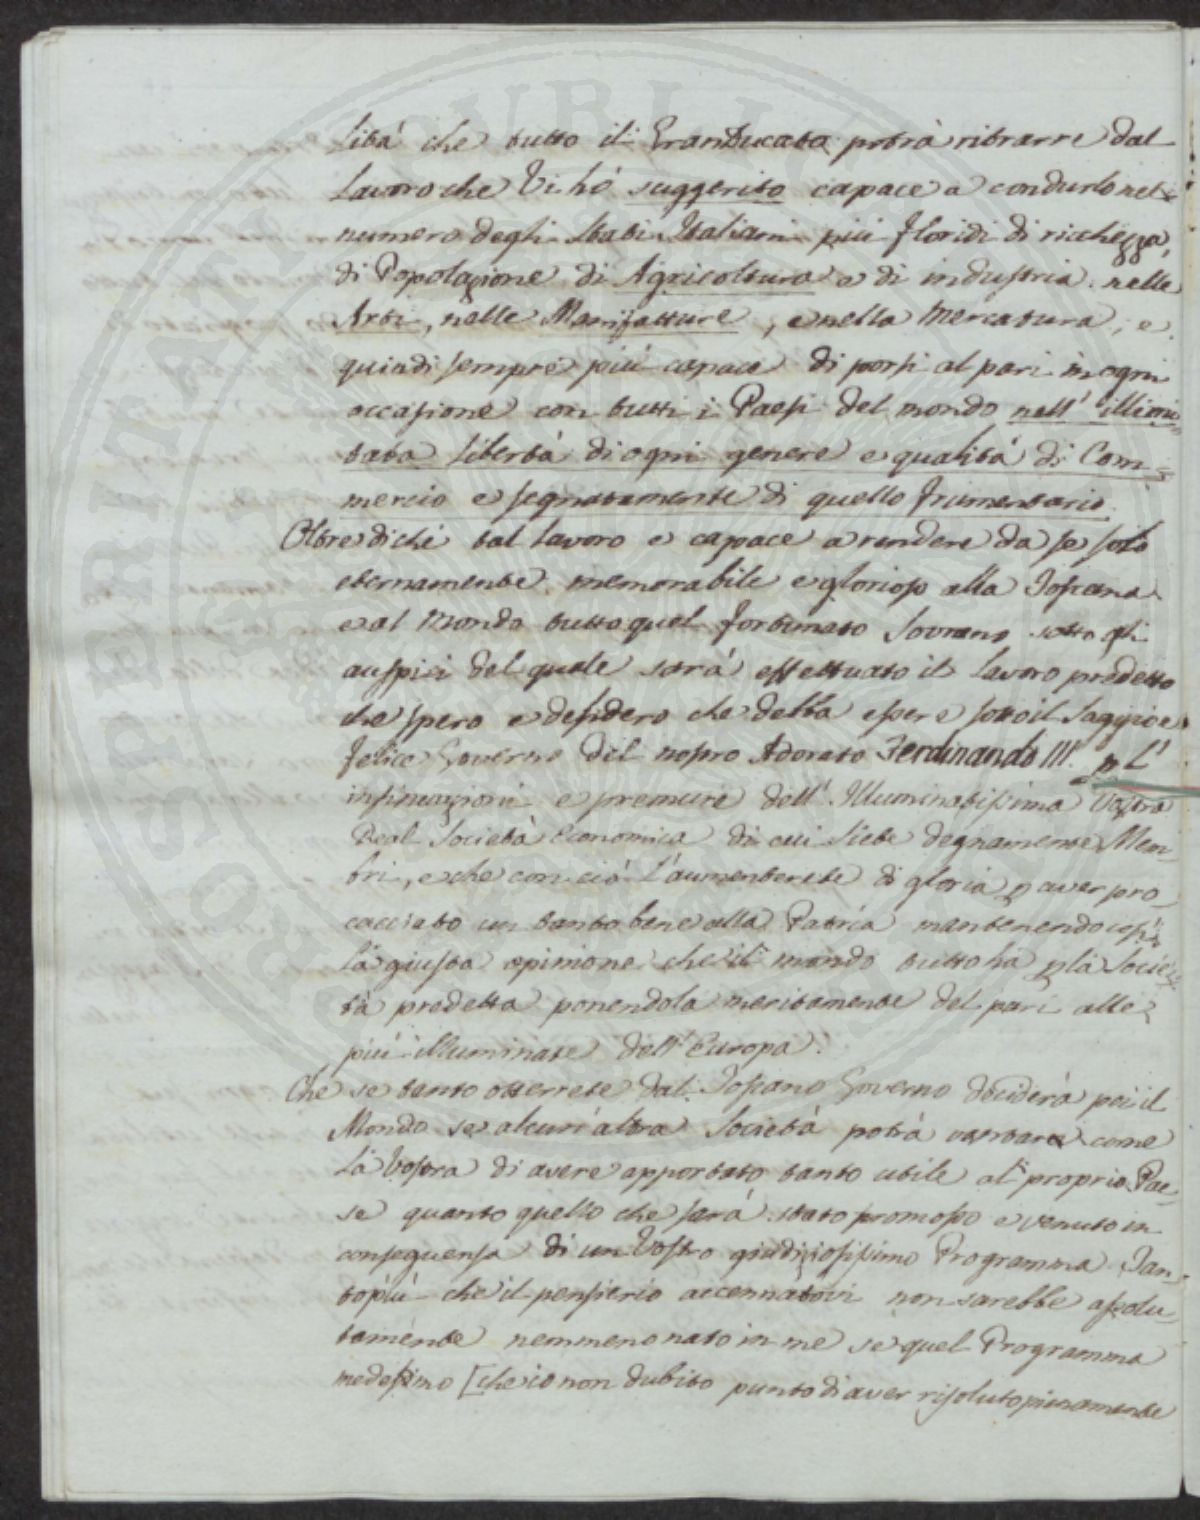 lità che tutto il GranDucato potrà ritrarre dal
Lavoro che Vi hò suggerito capace a condurlo nel
numero degli Stati Italiani più floridi di ricchezza,
di Popolazione di Agricoltura e di industria nelle
Arti, nelle Manifatture, e nella Mercatura, e
quindi sempre più capace di porsi al pari in ogni
occasione con tutti i Paesi del mondo nell' illimi-
tata libertà di ogni genere e qualità di Com-
mercio e segnatamente di quello frumentario.
Oltrediche tal lavoro e capace a rendere da se solo
eternamente memorabile e glorioso alla Toscana
e al Mondo tutto quel fortunato Sovrano sotto gli
auspici del quale sarà effettuato il Lavoro predetto
che spero e desidero che debba essere sotto il Saggio e
felice Governo del nostro Adorato Ferdinando III. p L'
insinuazioni e premure dell' Illuminatissima Vostra
Real Società Economica di cui siete degnamente Mem-
bri, e che con ciò L'aumenterete di gloria p aver pro-
cacciato un tanto bene alla Patria mantenendo così
la giusta opinione che il mondo tutto ha p la Socie-
tà predetta ponendola meritamente del pari alle
più illuminate dell' Europa.
Che se tanto otterrete dal Toscano Governo deciderà poi il
Mondo se alcun' altra Società potrà vantare come
La Vostra di avere apportato tanto utile al proprio Pae-
se quanto quello che sarà stato promosso e venuto in
conseguenza di un Vostro giudiziosissimo Programma. Tan-
topiù che il pensierio accennatovi non sarebbe assolu-
tamente nemmeno nato in me se quel Programma
medesimo [che io non dubito punto di aver risoluto pienamente